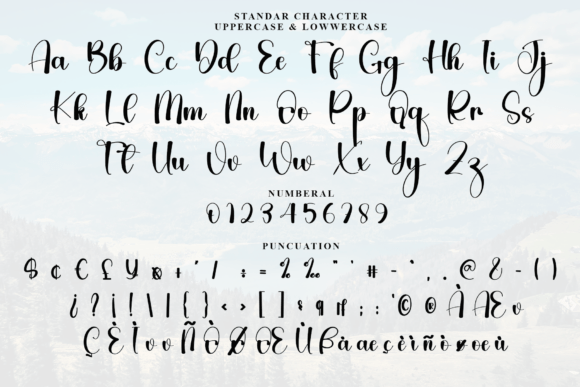 STANDAR CHARACTER
UPPERCASE & LOWWERCASE
Aa Bb Cc Dd Ee Ff Gg Hh Ii Jj
Kk Ll Mm Nn Oo Pp Qq Rr Ss
Tt Uu Vv Ww Xx Yy Zz
NUMBERAL
0123456789
PUNCUATION
$ ¢ € £ ¥ ¤ + ' / ÷ = % ‰ " # - , . @ & - ( )
¿ ? ¡ ! \ | { } < > [ ] § ¶ ; : © ® À Æ
Ç È Ì Ñ Ò Ø Œ Ù ß à æ ç è ì ñ ò ø œ ù